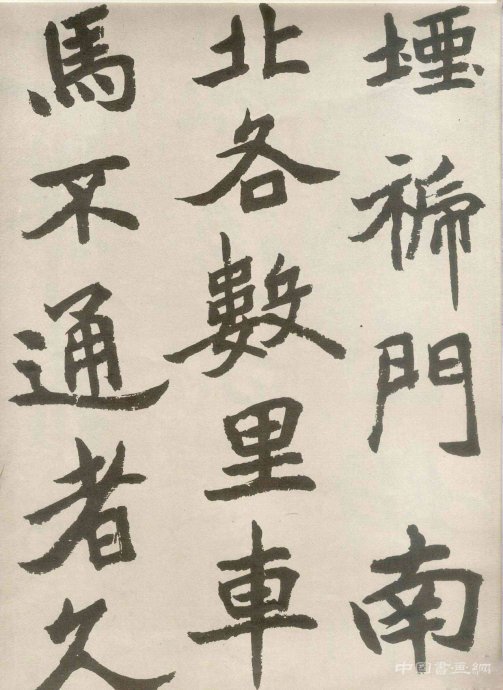 堙門南
北各數里車
馬不通者久
中国書画網